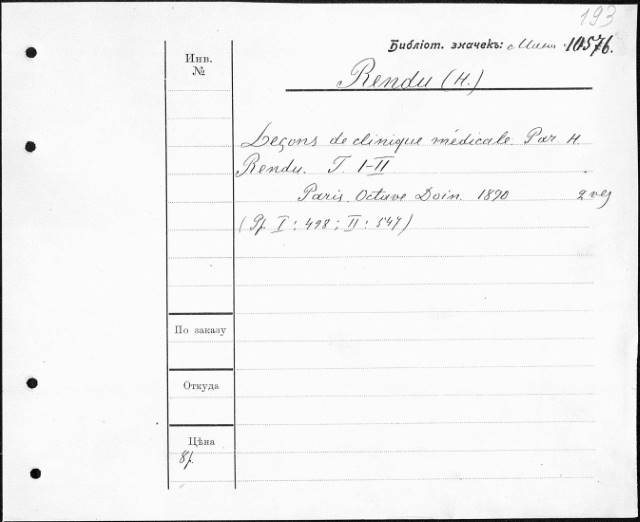 193
Библіот. значекъ: 10576.
Инв.
№
Rendu (H.)
Leçons de clinique médicale. Par H.
Rendu. T. I-II
Paris. Octave Doin. 1890 2 vol
(Pp. I: 498; II: 547)
По заказу
Откуда
Цѣна
8р.